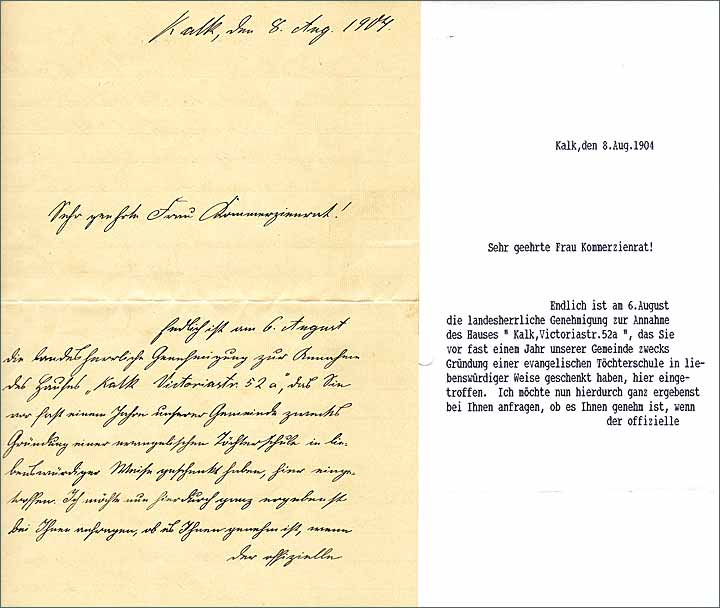 Kalk, den 8. Aug. 1904.
Sehr geehrte Frau Kommerzienrat!
Endlich ist am 6. August
die landesherrliche Genehmigung zur Annahme
des Hauses „Kalk Victoriastr. 52a", das Sie
vor fast einem Jahre unserer Gemeinde zwecks
Gründung einer evangelischen Töchterschule in lie-
benswürdiger Weise geschenkt haben, hier einge-
troffen. Ich möchte nun hierdurch ganz ergebenst
bei Ihnen anfragen, ob es Ihnen genehm ist, wenn
der offizielle
Kalk,den 8.Aug.1904
Sehr geehrte Frau Kommerzienrat!
Endlich ist am 6.August
die landesherrliche Genehmigung zur Annahme
des Hauses " Kalk,Victoriastr.52a ", das Sie
vor fast einem Jahr unserer Gemeinde zwecks
Gründung einer evangelischen Töchterschule in lie-
benswürdiger Weise geschenkt haben, hier einge-
troffen. Ich möchte nun hierdurch ganz ergebenst
bei Ihnen anfragen, ob es Ihnen genehm ist, wenn
der offizielle